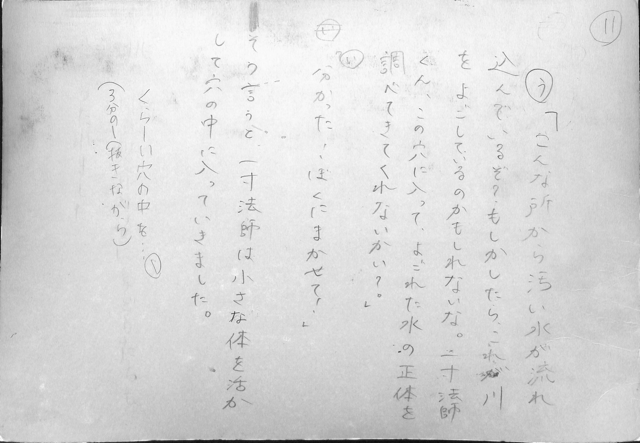 11
う「こんな所から汚い水が流れ
込んでいるぞ?もしかしたら、これが川
をよごしているのかもしれないな。一寸法師
くん、この穴に入って、よごれた水の正体を
調べてきてくれないかい?。」
い「分かった!ぼくにまかせて!」
そう言うと、一寸法師は小さな体を活か
して穴の中に入っていきました。
くらーい穴の中を…
(3分の1抜きながら)